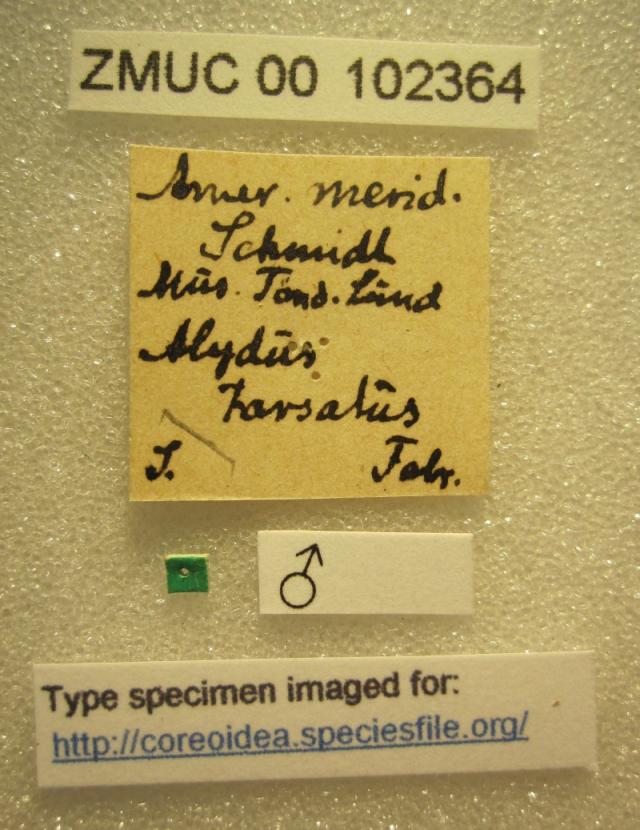 ZMUC 00 102364
Amer. merid.
Schmidt
Mus. Tond. Lund
Alydus
tarsatus
S. Fabr.
♂
Type specimen imaged for:
http://coreoidea.speciesfile.org/